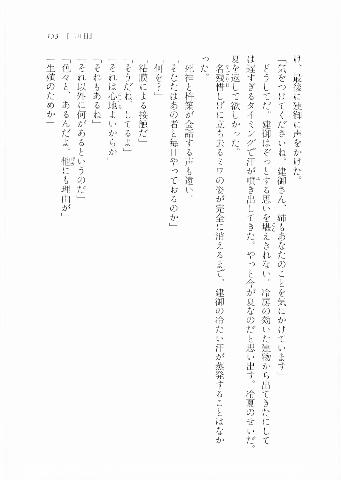 け、最後に建御に声をかけた。
「気をつけてくださいね、建御さん。姉もあなたのことを気にかけています」
どうしてだ。建御はぞっとする思いを堪えきれない。冷房の効いた建物から出てきたにして
は遅すぎるタイミングで汗が噴き出してきた。やっと今が夏なのだと思い出す。冷夏のせいだ。
夏を返して欲しかった。
名残惜しげに立ち去るミワの姿が完全に消えるまで、建御の冷たい汗が蒸発することはなか
った。
死神と柊葉が会話する声も遠い。
「そなたはあの者と毎日やっておるのか」
「何を？」
「粘膜による接触だ」
「そうだね、してるよ」
「それは心地よいからか」
「それもあるね」
「それ以外に何があるというのだ」
「色々と、あるんだよ。他にも理由が」
「生殖のためか」